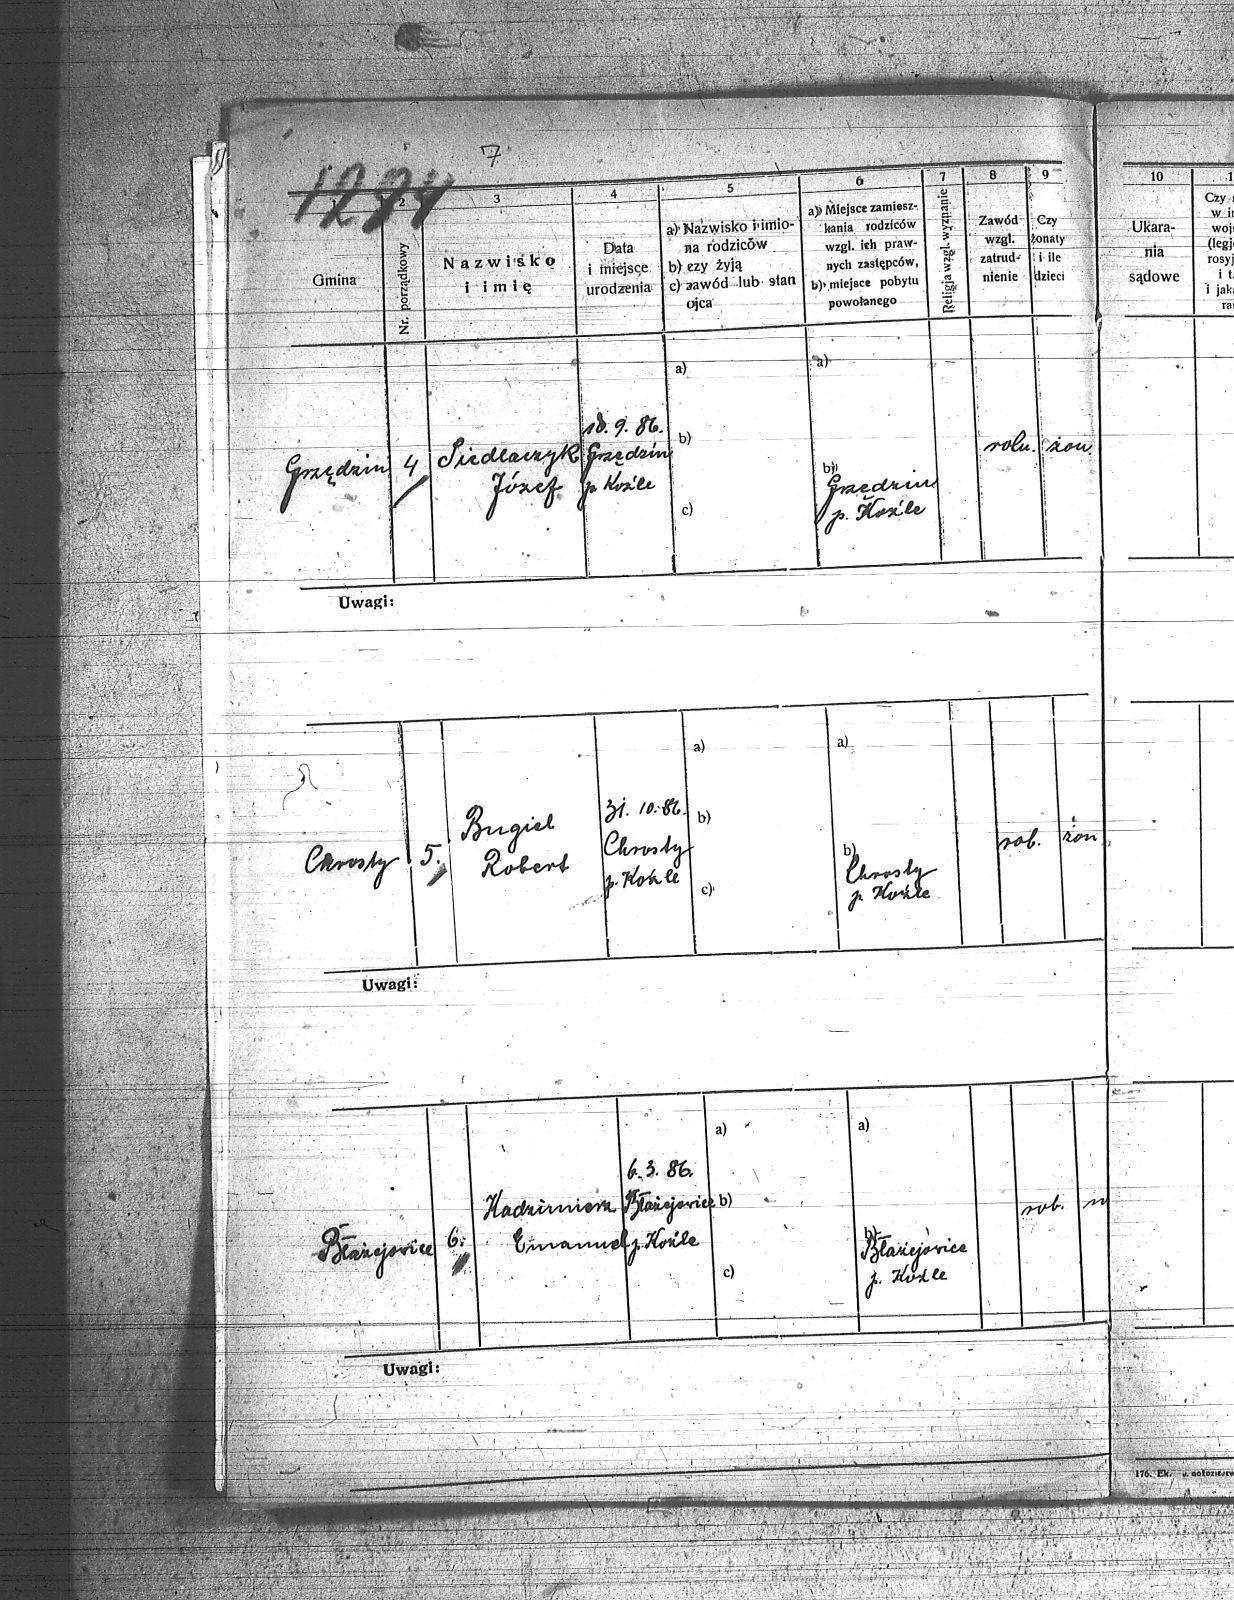 7
1274
1 2 3 4 5 6 7 8 9 10
Gmina
Nr. porządkowy
Nazwisko
i imię
Data
i miejsce
urodzenia
a) Nazwisko i imio-
na rodziców
b) czy żyją
c) zawód lub stan
ojca
a) Miejsce zamiesz-
kania rodziców
wzgl. ich praw-
nych zastępców,
b) miejsce pobytu
powołanego
Religja wzgl. wyznanie
Zawód
wzgl.
zatrud-
nienie
Czy
żonaty
i ile
dzieci
Ukara-
nia
sądowe
Czy
w
woj
(legj
rosyj
i t.
i jak
ra
Grzędzin 4
Siedlaczyk
Józef
18.9.86.
Grzędzin
p. Koźle
a)
b)
c)
a)
b)
Grzędzin
p. Koźle
roln. żon
Uwagi:
Chrosty 5.
Bugiel
Robert
31.10.86.
Chrosty
p. Koźle
a)
b)
c)
a)
b)
Chrosty
p. Koźle
rob. żon
Uwagi:
Błażejowice 6.
Kadzimierz
Emanuel
6.3.86.
Błażejowice
p. Koźle
a)
b)
c)
a)
b)
Błażejowice
p. Koźle
rob. n
Uwagi:
176. Ek.